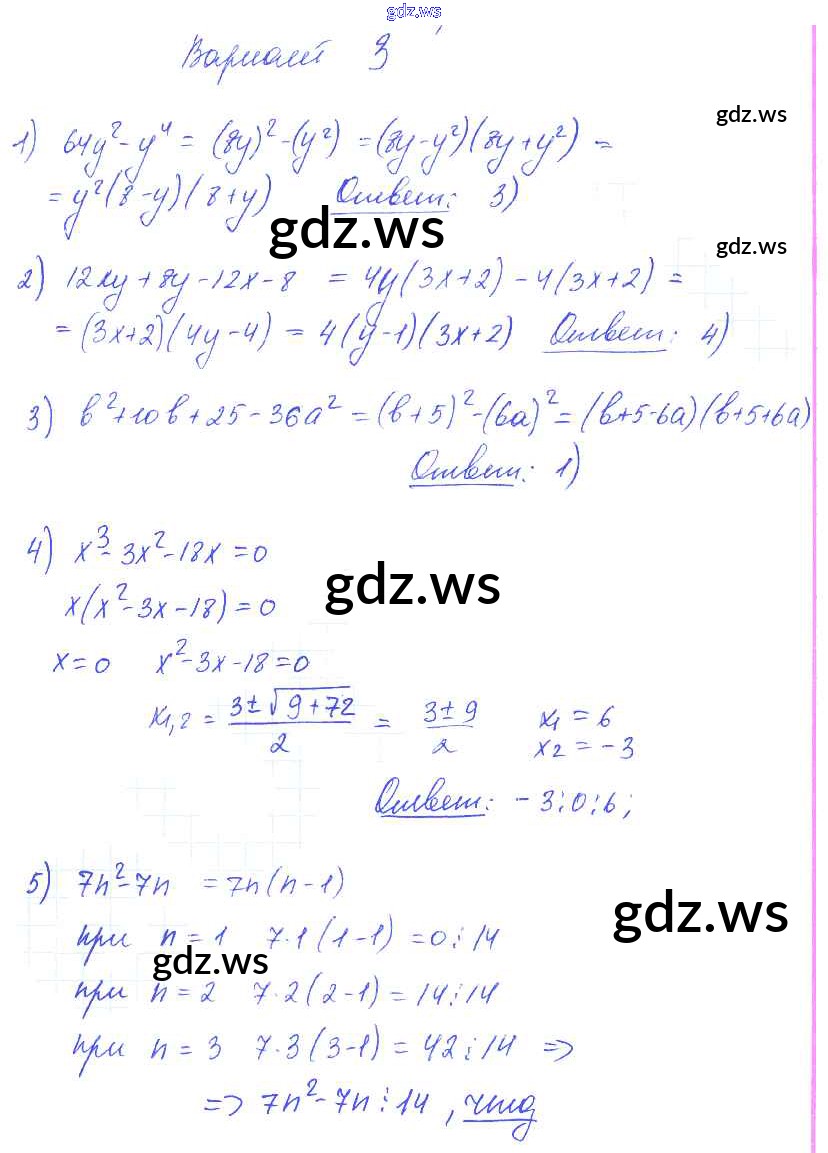 gdz.ws
Вариант 3
gdz.ws
1) 64y² - y⁴ = (8y)² - (y²) = (8y - y²)(8y + y²) =
= y²(8 - y)(8 + y) Ответ: 3)
gdz.ws
gdz.ws
2) 12xy + 8y - 12x - 8 = 4y(3x + 2) - 4(3x + 2) =
= (3x + 2)(4y - 4) = 4(y - 1)(3x + 2) Ответ: 4)
3) b² + 10b + 25 - 36a² = (b + 5)² - (6a)² = (b + 5 - 6a)(b + 5 + 6a)
Ответ: 1)
4) x³ - 3x² - 18x = 0
gdz.ws
x(x² - 3x - 18) = 0
x = 0 x² - 3x - 18 = 0
x₁,₂ = (3 ± √9 + 72)/2 = (3 ± 9)/2 x₁ = 6
x₂ = -3
Ответ: -3; 0; 6;
5) 7n² - 7n = 7n(n - 1)
gdz.ws
при n = 1 7·1(1 - 1) = 0 ⋮ 14
gdz.ws
при n = 2 7·2(2 - 1) = 14 ⋮ 14
при n = 3 7·3(3 - 1) = 42 ⋮ 14 =>
=> 7n² - 7n ⋮ 14, чтд